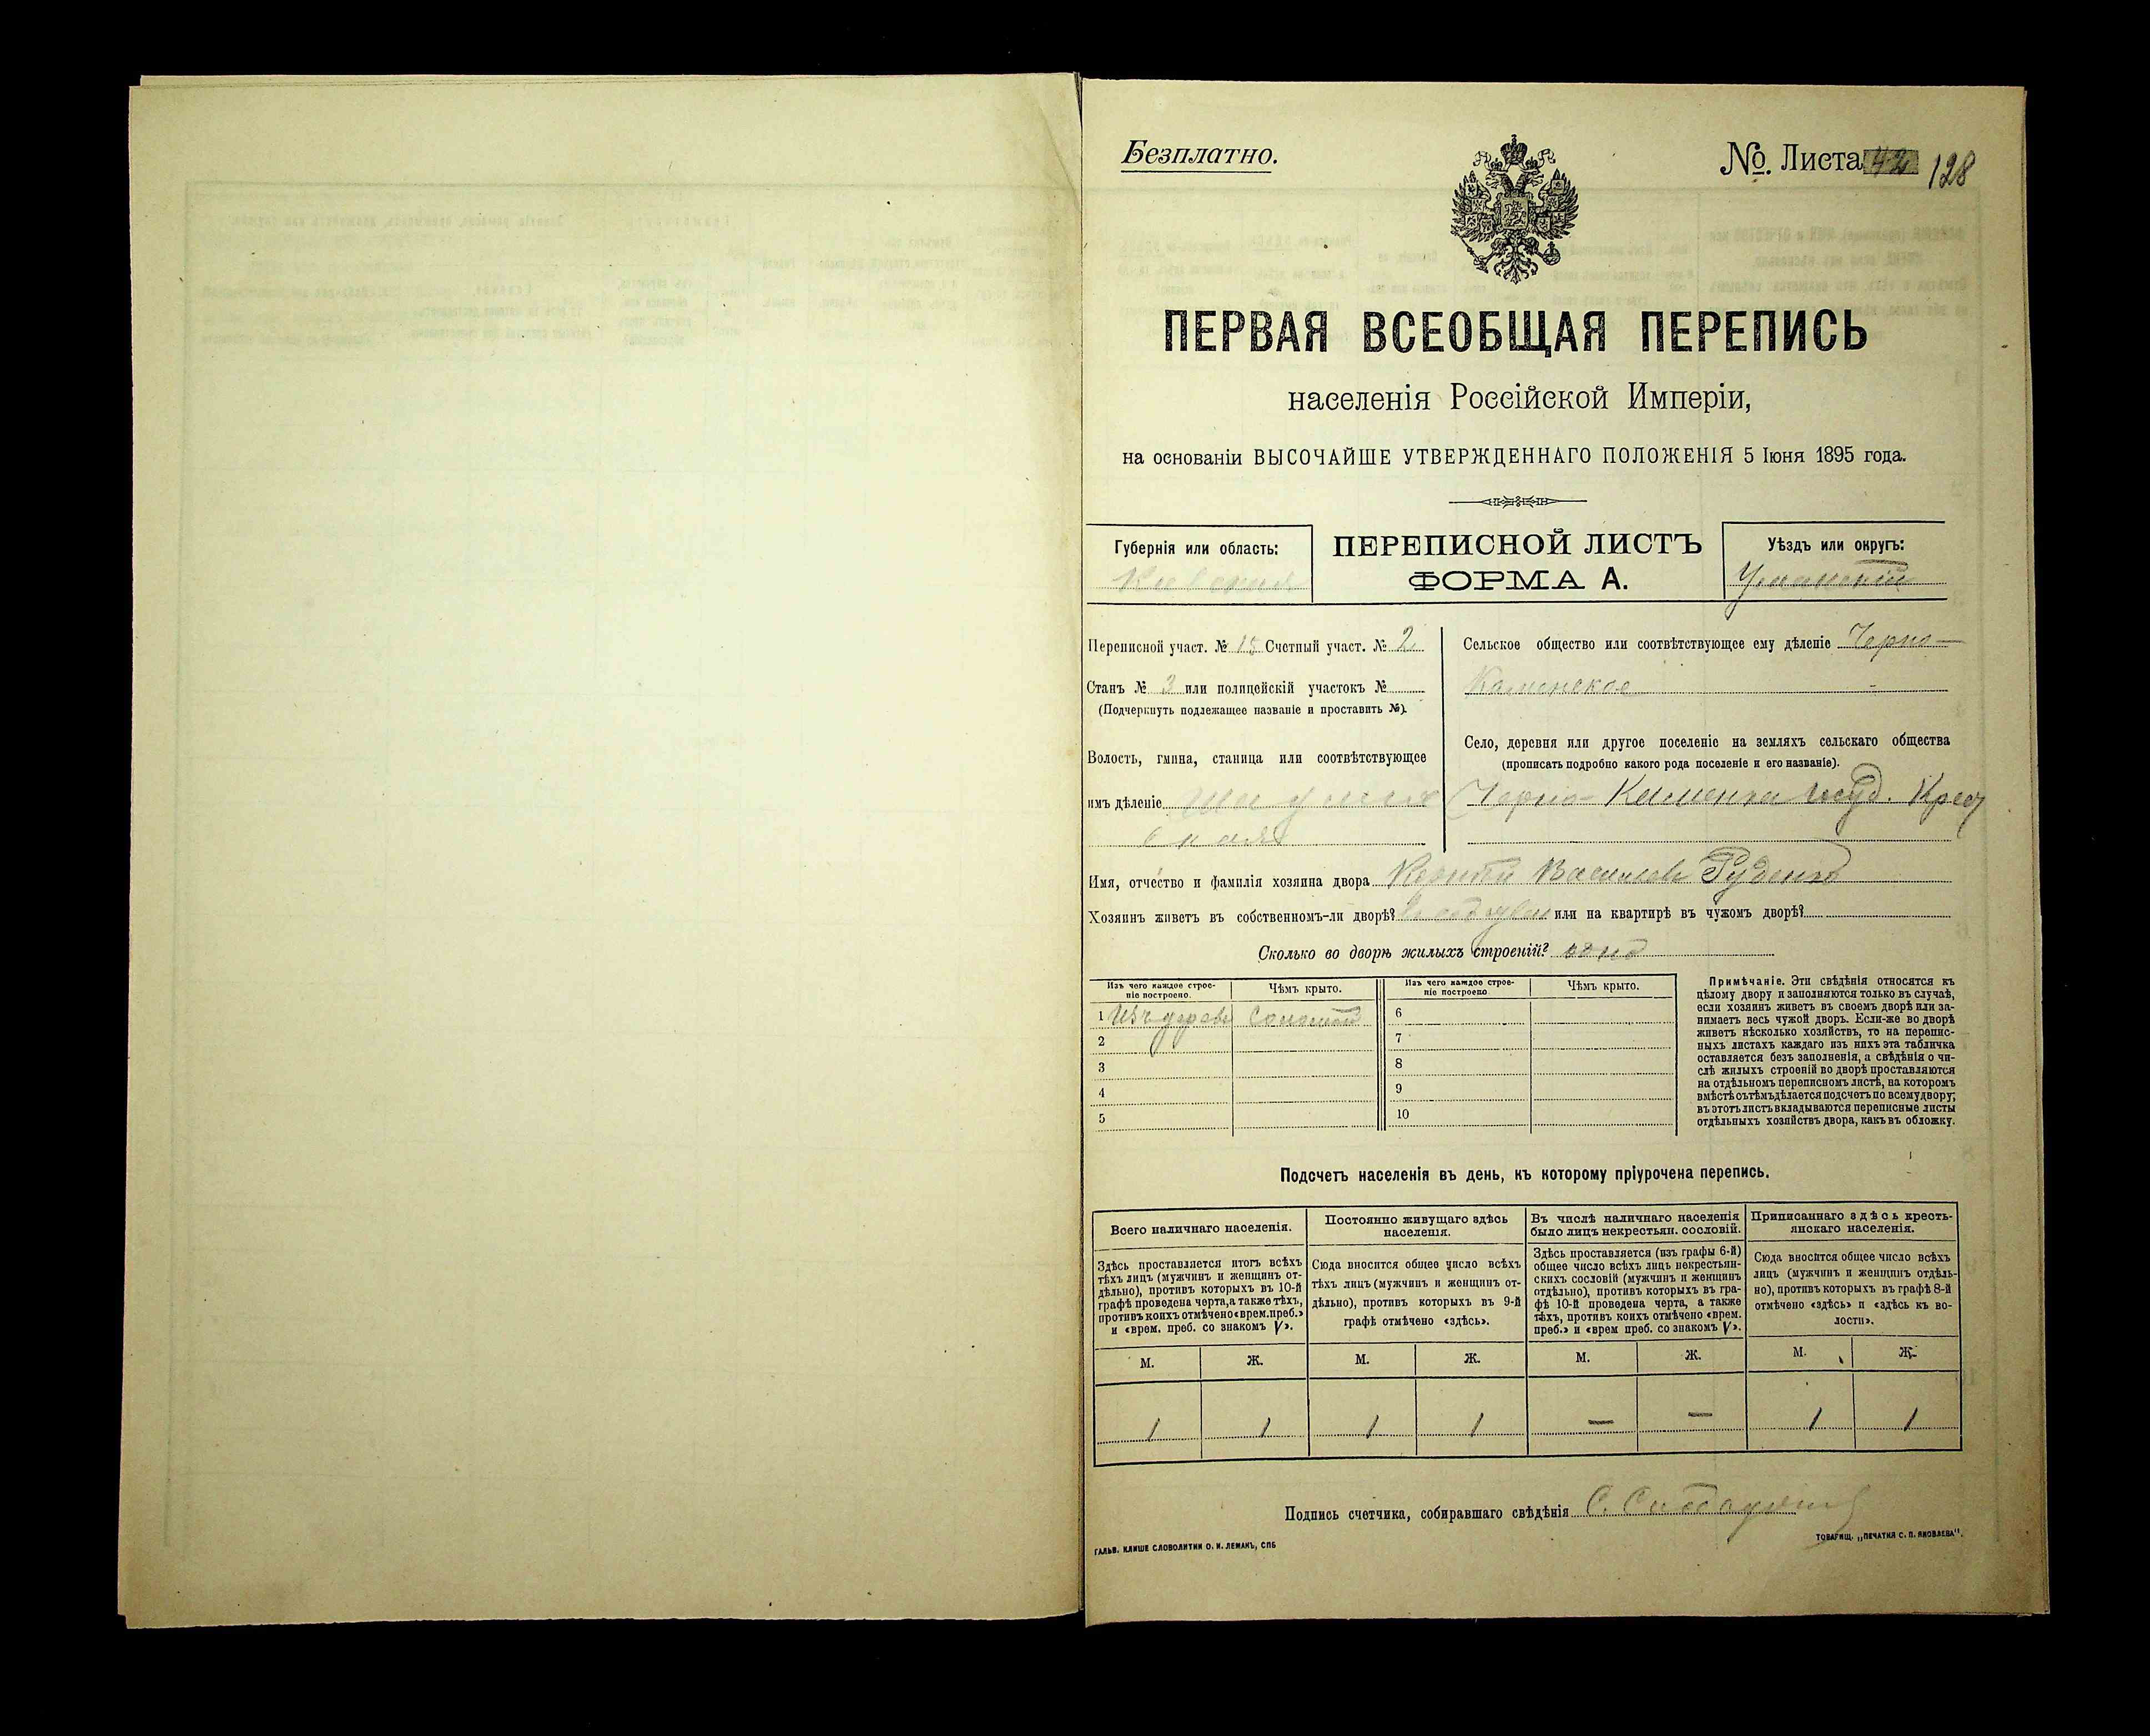 Безплатно.
№. Листа 42 128
ПЕРВАЯ ВСЕОБЩАЯ ПЕРЕПИСЬ
населенія Россійской Имперіи,
на основаніи ВЫСОЧАЙШЕ УТВЕРЖДЕННАГО ПОЛОЖЕНІЯ 5 Іюня 1895 года.
Губернія или область:
Кіевская
ПЕРЕПИСНОЙ ЛИСТЪ
ФОРМА А.
Уѣздъ или округъ:
Уманскій
Переписной участ. № 15 Счетный участ. № 2
Станъ № 3 или полицейскій участокъ №
(Подчеркнуть подлежащее названіе и проставить №).
Волость, гмина, станица или соотвѣтствующее
имъ дѣленіе
ская
Сельское общество или соотвѣтствующее ему дѣленіе Черно-
Каменское
Село, деревня или другое поселеніе на земляхъ сельскаго общества
(прописать подробно какого рода поселеніе и его названіе).
Черно-Каменка госуд. Крес
Имя, отчество и фамилія хозяина двора Василіевъ Руденко
Хозяинъ живетъ въ собственномъ-ли дворѣ? или на квартирѣ въ чужомъ дворѣ?
Сколько во дворѣ жилыхъ строеній? одно
Изъ чего каждое строе-
ніе построено.
Чѣмъ крыто.
Изъ чего каждое строе-
ніе построено
Чѣмъ крыто.
1 Изъ дерева Соломой 6
2 7
3 8
4 9
5 10
Примѣчаніе. Эти свѣдѣнія относятся къ
цѣлому двору и заполняются только въ случаѣ,
если хозяинъ живетъ въ своемъ дворѣ или за-
нимаетъ весь чужой дворъ. Если-же во дворѣ
живетъ нѣсколько хозяйствъ, то на перепис-
ныхъ листахъ каждаго изъ нихъ эта табличка
оставляется безъ заполненія, а свѣдѣнія о чи-
слѣ жилыхъ строеній во дворѣ проставляются
на отдѣльномъ переписномъ листѣ, на которомъ
вмѣстѣ съ тѣмъ дѣлается подсчетъ по всему двору;
въ этотъ листъ вкладываются переписные листы
отдѣльныхъ хозяйствъ двора, какъ въ обложку.
Подсчетъ населенія въ день, къ которому пріурочена перепись.
Всего наличнаго населенія.
Здѣсь проставляется итогъ всѣхъ
тѣхъ лицъ (мужчинъ и женщинъ от-
дѣльно), противъ которыхъ въ 10-й
графѣ проведена черта, а также тѣхъ,
противъ коихъ отмѣчено «врем. преб.»
и «врем. преб. со знакомъ V».
Постоянно живущаго здѣсь
населенія.
Сюда вносится общее число всѣхъ
тѣхъ лицъ (мужчинъ и женщинъ от-
дѣльно), противъ которыхъ въ 9-й
графѣ отмѣчено «здѣсь».
Въ числѣ наличнаго населенія
было лицъ некрестьян. сословій.
Здѣсь проставляется (изъ графы 6-й)
общее число всѣхъ лицъ некрестьян-
скихъ сословій (мужчинъ и женщинъ
отдѣльно), противъ которыхъ въ гра-
фѣ 10-й проведена черта, а также
тѣхъ, противъ коихъ отмѣчено «врем.
преб.» и «врем преб. со знакомъ V».
Приписаннаго здѣсь кресть-
янскаго населенія.
Сюда вносится общее число всѣхъ
лицъ (мужчинъ и женщинъ отдѣль-
но), противъ которыхъ въ графѣ 8-й
отмѣчено «здѣсь» и «здѣсь къ во-
лости».
М. Ж. М. Ж. М. Ж. М. Ж.
1 1 1 1 — — 1 1
Подпись счетчика, собиравшаго свѣдѣнія С.
ГАЛЬВ. КЛИШЕ СЛОВОЛИТНИ О. И. ЛЕМАНЪ, СПБ
ТОВАРИЩ. „ПЕЧАТНЯ С. П. ЯКОВЛЕВА".